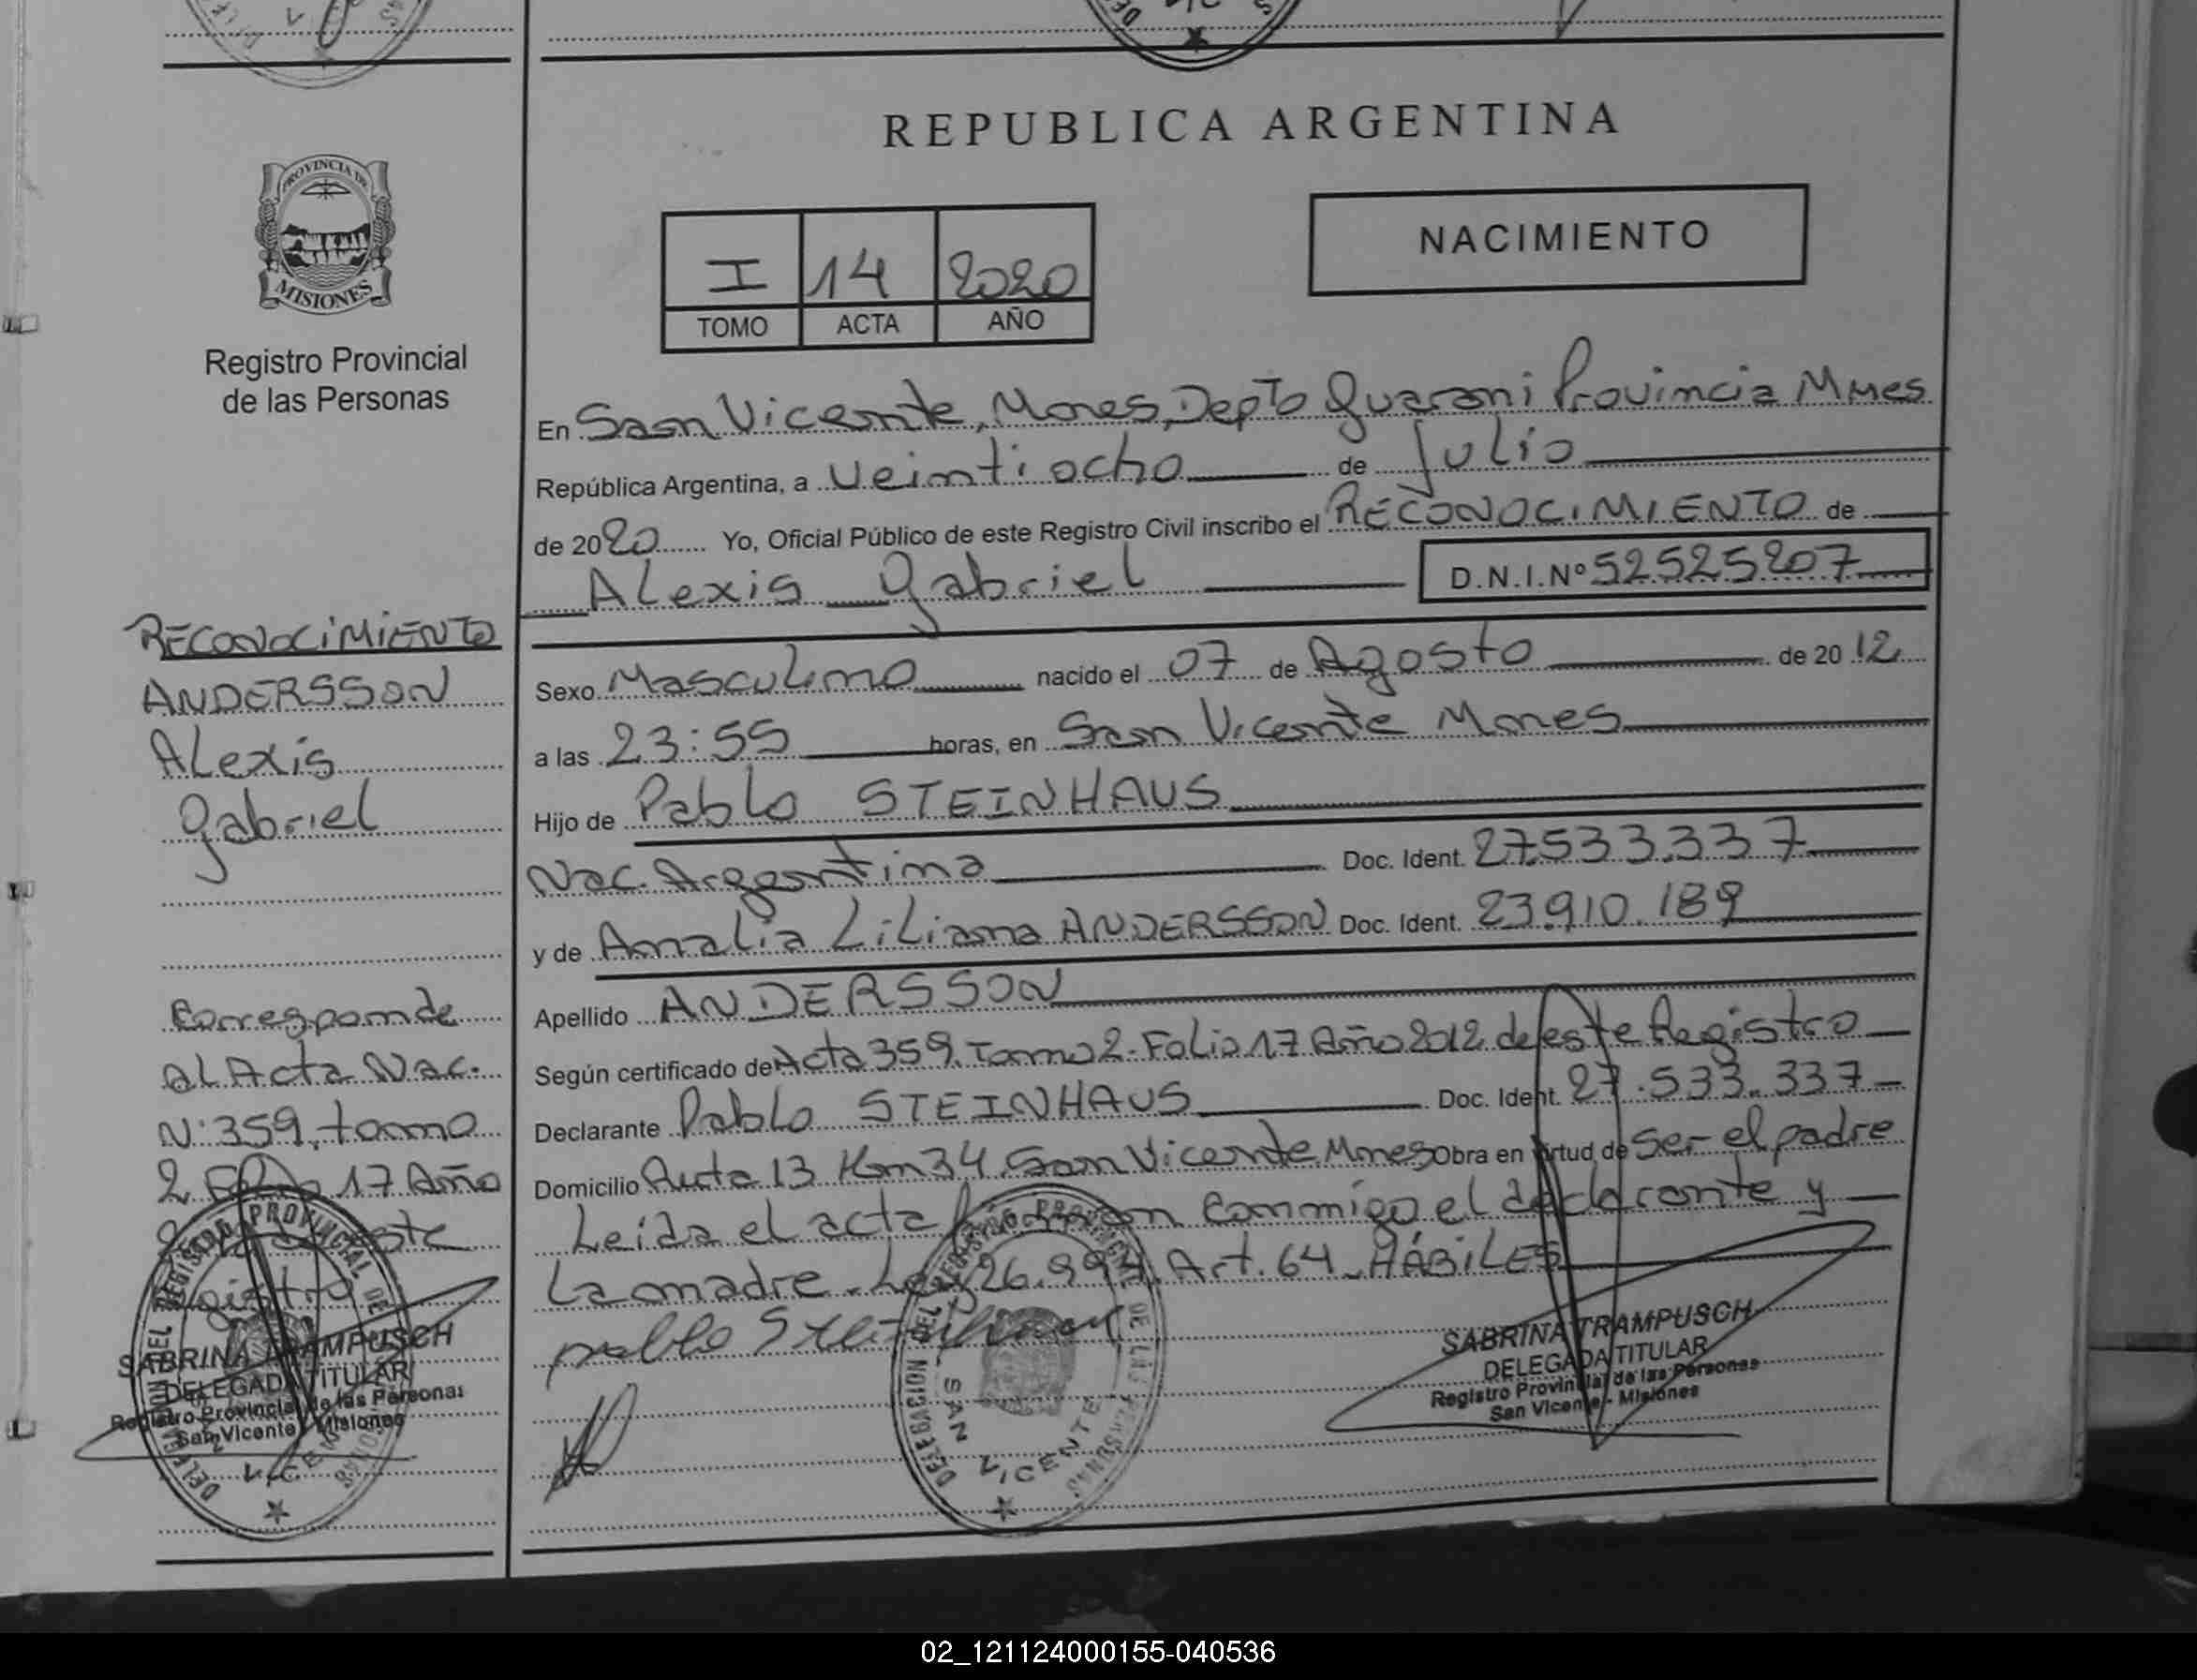 REPUBLICA ARGENTINA
PROVINCIA DE
MISIONES
Registro Provincial
de las Personas
I 14 2020
TOMO ACTA AÑO
NACIMIENTO
En San Vicente, Mnes, Depto Guarani Provincia Mnes
República Argentina, a Veintiocho de Julio
de 2020 Yo, Oficial Público de este Registro Civil inscribo el RECONOCIMIENTO de
Alexis Gabriel D.N.I.Nº 52525207
Sexo Masculino nacido el 07 de Agosto de 2012
a las 23:55 horas, en San Vicente Mnes
Hijo de Pablo STEINHAUS
Nac. Argentina Doc. Ident. 27.533.337
y de Amalia Liliana ANDERSSON Doc. Ident. 23.910.189
Apellido ANDERSSON
Según certificado de Acta 359. Tomo 2. Folio 17 Año 2012 de este Registro
Declarante Pablo STEINHAUS Doc. Ident. 27.533.337
Domicilio Ruta 13 Km 34 San Vicente Mnes Obra en virtud de Ser el padre
Leida el acta firman conmigo el declarante y
La madre. Ley 26.994. Art. 64. HÁBILES
pablo Steinhaus
SABRINA TRAMPUSCH
DELEGADA TITULAR
Registro Provincial de las Personas
San Vicente - Misiones
DELEGACION DEL REGISTRO PROVINCIAL DE LAS PERSONAS
SAN VICENTE
RECONOCIMIENTO
ANDERSSON
Alexis
Gabriel
Corresponde
al Acta Nac.
Nº 359, tomo
2 Folio 17 Año
este
Registro
SABRINA TRAMPUSCH
DELEGADA TITULAR
Registro Provincial de las Personas
San Vicente - Misiones
02_121124000155-040536